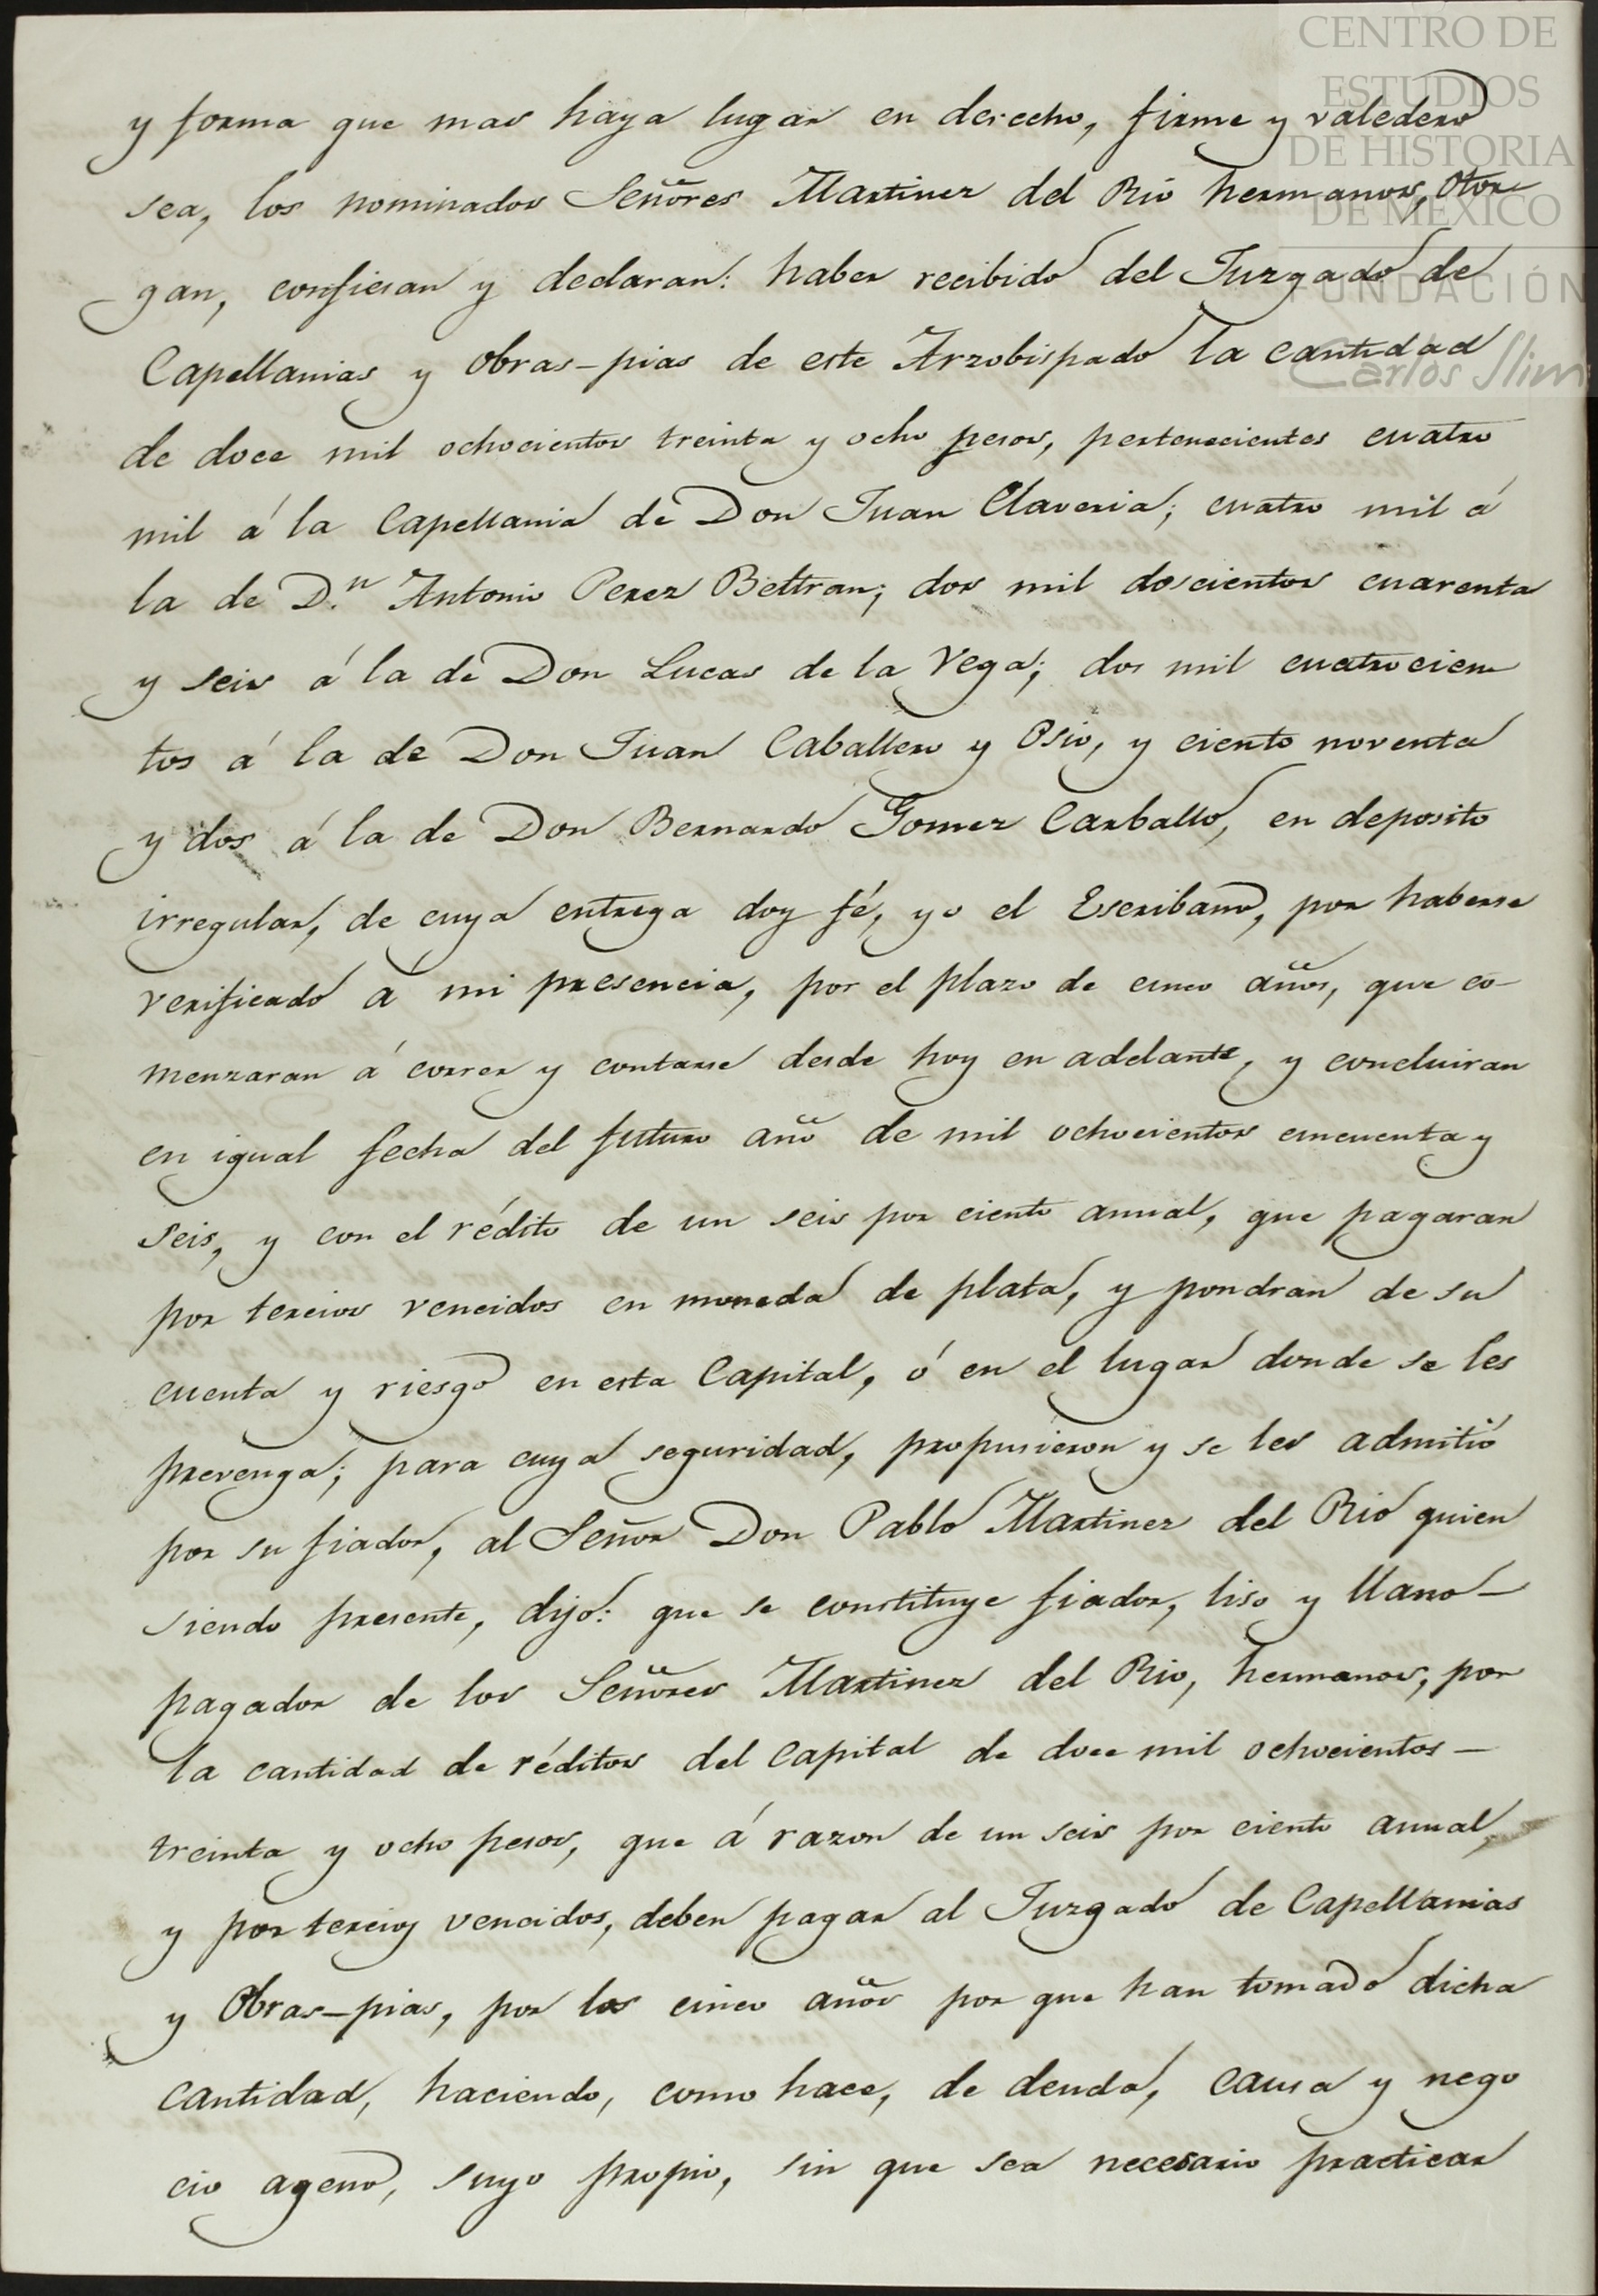 CENTRO DE
ESTUDIOS
DE HISTORIA
DE MÉXICO
FUNDACIÓN
Carlos Slim
y forma que mas haya lugar en derecho, firme y valedero
sea, los nominados Señores Martinez del Rio hermanos, otor
gan, confiesan y declaran: haber recibido del Juzgado de
Capellanias y obras-pias de este Arzobispado la cantidad
de doce mil ochocientos treinta y ocho pesos, pertenecientes cuatro
mil á la Capellania de Don Juan Claveria; cuatro mil á
la de D.n Antonio Perez Beltran; dos mil doscientos cuarenta
y seis á la de Don Lucas de la Vega; dos mil cuatrocien
tos á la de Don Juan Caballero y Osio, y ciento noventa
y dos á la de Don Bernardo Gomez Carballo, en deposito
irregular, de cuya entrega doy fé, yo el Escribano, por haberse
verificado á mi presencia, por el plazo de cinco años, que co-
menzaran á correr y contarse desde hoy en adelante, y concluiran
en igual fecha del futuro año de mil ochocientos cincuenta y
seis, y con el rédito de un seis por ciento anual, que pagaran
por tercios vencidos en moneda de plata, y pondran de su
cuenta y riesgo en esta Capital, ó en el lugar donde se les
prevenga; para cuya seguridad, propusieron y se les admitió
por su fiador, al Señor Don Pablo Martinez del Rio quien
siendo presente, dijo: que se constituye fiador, liso y llano-
pagador de los Señores Martinez del Rio, hermanos, por
la cantidad de réditos del capital de doce mil ochocientos-
treinta y ocho pesos, que á razon de un seis por ciento anual,
y por tercios vencidos, deben pagar al Juzgado de Capellanias
y Obras-pias, por los cinco años por que han tomado dicha
cantidad, haciendo, como hace, de deuda, causa y nego
cio ageno, suyo propio, sin que sea necesario practicar